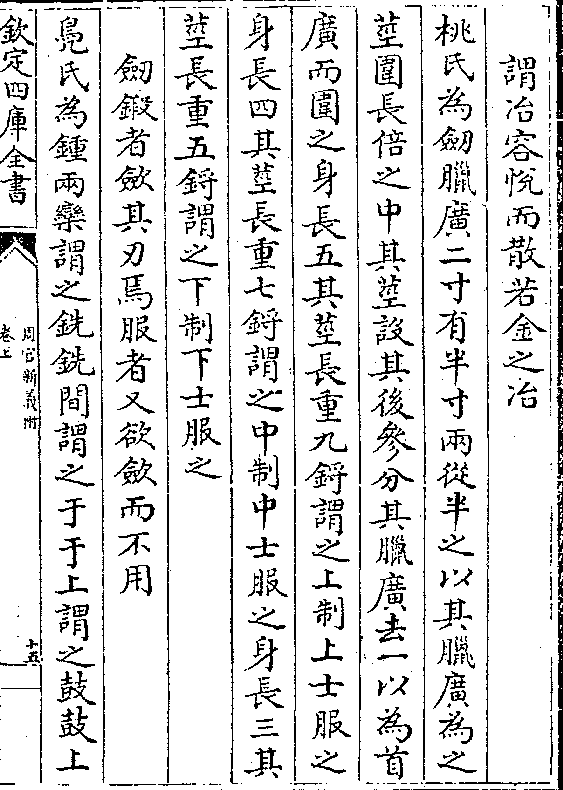 謂冶容恱而散若金之冶
桃氏為劒臘廣二寸有半寸兩從半之以其臘廣為之
莖圍長倍之中其莖設其後參分其臘廣去一以為首
廣而圍之身長五其莖長重九鋝謂之上制上士服之
身長四其莖長重七鋝謂之中制中士服之身長三其
莖長重五鋝謂之下制下士服之
劒鍛者斂其刃焉服者又欲斂而不用
鳧氏為鍾兩欒謂之銑銑間謂之于于上謂之鼓鼓上
欽定四庫全書
周官新義附
卷上
十五